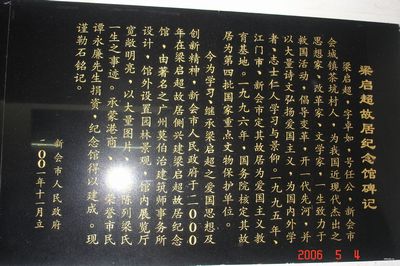 梁启超故居纪念馆碑记
梁启超，字卓如，号任公，新会市
会城镇茶坑村人，为我国近现代杰出之
思想家、改革家、文学家，一生致力于
救国活动，倡导变革，开一代先河，并
以大量诗文弘扬爱国主义，为国内外学
者、志士仁人学习与景仰。一九九五年，
江门市、新会市定其故居为爱国主义教
育基地。一九九六年，国务院核定其故
居为第四批国家重点文物保护单位。
今为学习、继承梁启超之爱国思想及
创新精神，新会市人民政府于二〇〇〇
年在梁启超故居侧兴建梁启超故居纪念
馆，由著名之广州莫伯治建筑师事务所
设计，馆外设置园林景观，馆内展览厅
宽敞明亮，以大量图片、实物陈列梁氏
一生之事迹。承蒙港商、新会荣誉市民
谭永廉先生捐资，纪念馆得以建成。现
谨勒石铭记。
新会市人民政府
二〇〇一年十一月立
2006 5 4